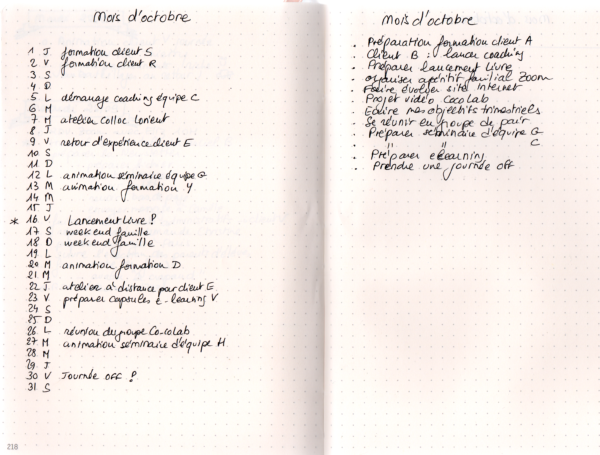 Mois d'octobre
1 J formation client S
2 V formation client R
3 S
4 D
5 L démarrage coaching équipe C
6 M
7 M atelier colloc Lorient
8 J
9 V retour d'expérience client E
10 S
11 D
12 L animation séminaire équipe G
13 M animation formation Y
14 M
15 J
* 16 V Lancement Livre !
17 S week end famille
18 D week end famille
19 L
20 M animation formation D
21 M
22 J atelier à distance pour client E
23 V préparer capsules e-learning V
24 S
25 D
26 L réunion du groupe Co-colab
27 M animation séminaire d'équipe H
28 M
29 J
30 V Journée off !
31 S
218
Mois d'octobre
. Préparation formation client A
. Client B : lancer coaching
. Préparer lancement Livre
. organiser apéritif familial Zoom
. Faire évoluer site internet
. Projet vidéo CocoLab
. Ecrire mes objectifs trimestriels
. Se réunir en groupe de pair
. Préparer séminaire d'équipe G
. " " C
. Préparer elearning
. Prendre une journée off